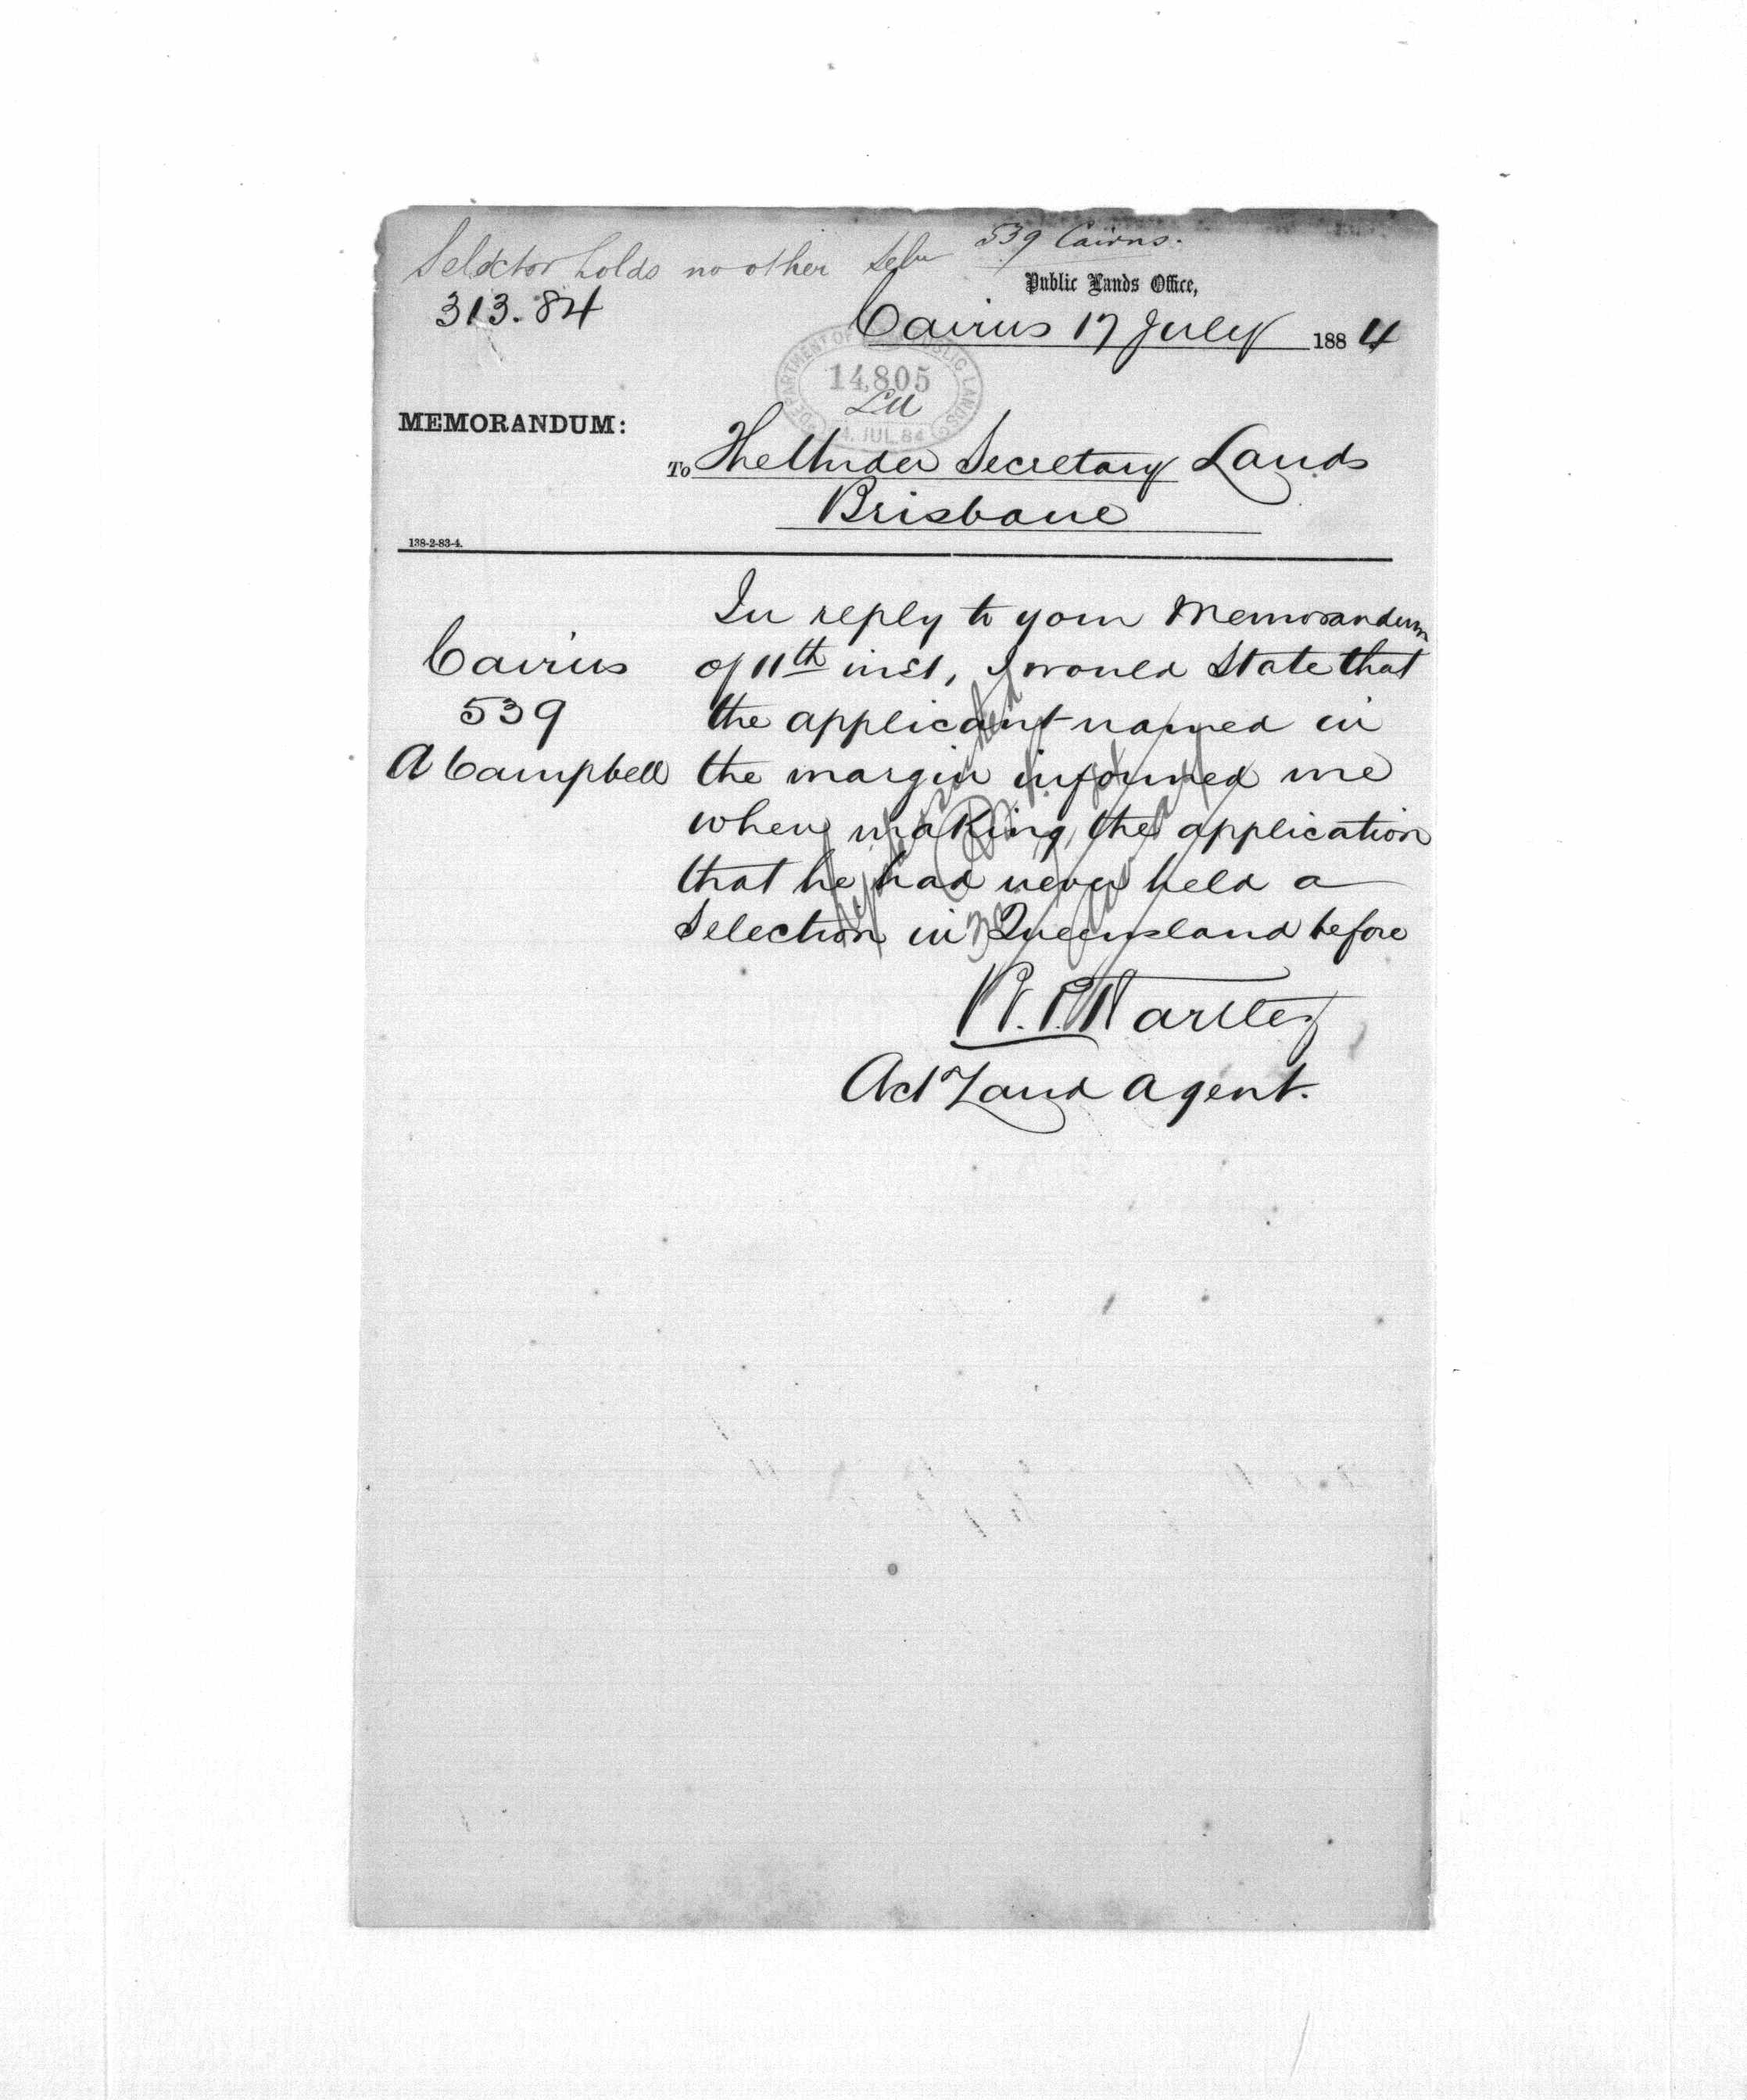 Selector holds no other Seln
539 Cairns.
Public Lands Office,
313.84
Cairns 17 July 1884
DEPARTMENT OF PUBLIC LANDS
14,805
JUL. 84
MEMORANDUM:
To The Under Secretary Lands
Brisbane
138-2-83-4.
In reply to your Memorandum
Cairns
of 11th inst, I would State that
539
the applicant named in
A Campbell
the margin informed me
when making the application
that he had never held a
Selection in Queensland before
Hartley
Act Land Agent.